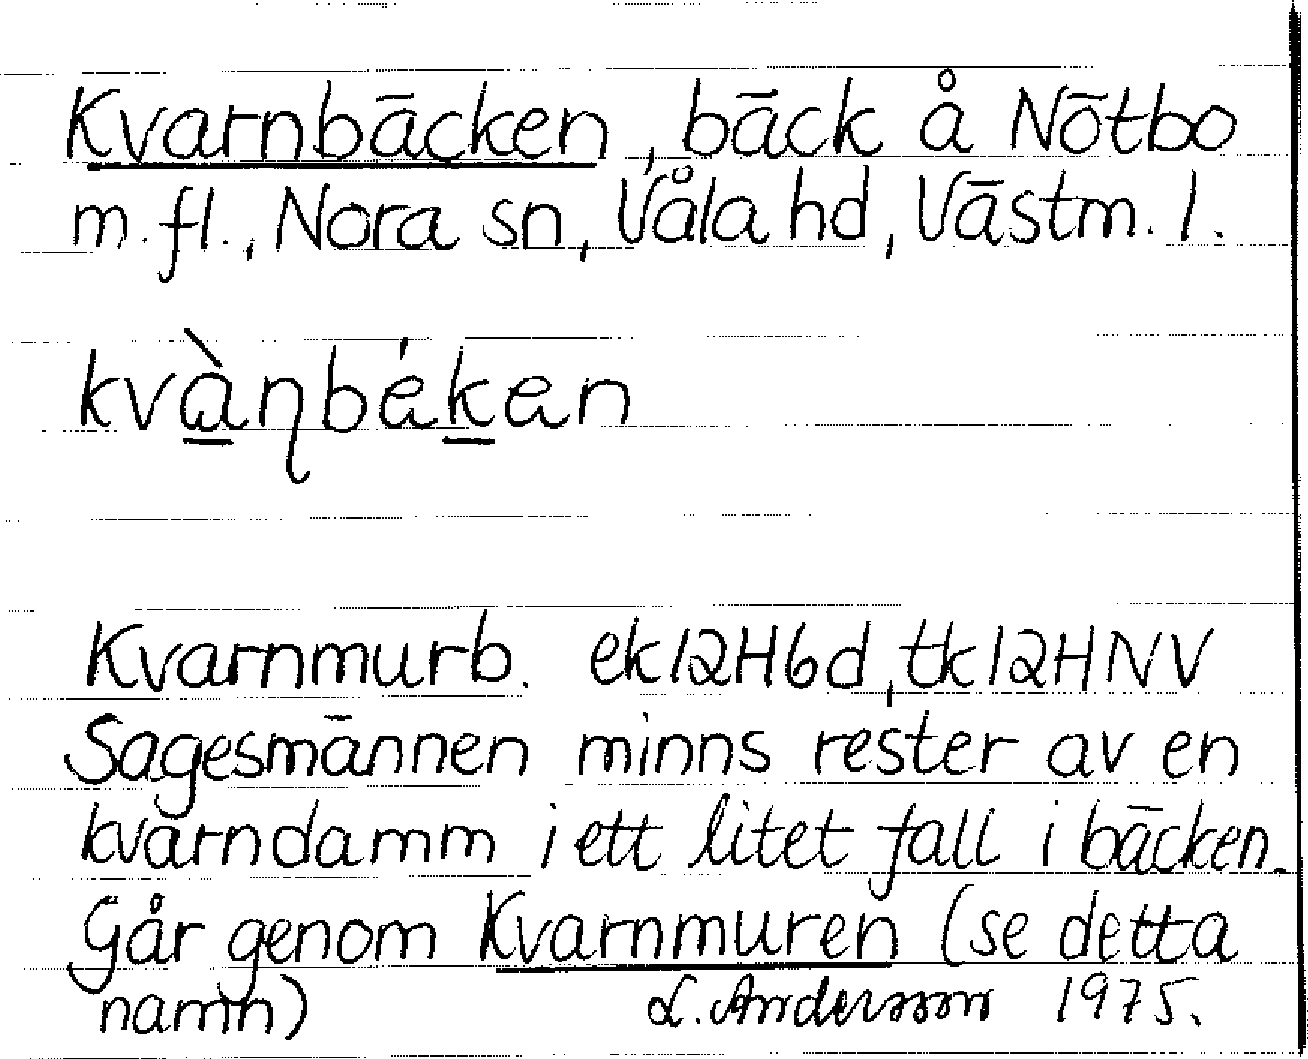 Kvarnbäcken, bäck å Nötbo
m.fl., Nora sn, Våla hd, Västm. l.
kvàɳbékən
Kvarnmurb. ek 12H6d, tk 12HNV
Sagesmännen minns rester av en
kvarndamm i ett litet fall i bäcken.
Går genom Kvarnmuren (se detta
namn) L. Andersson 1975.